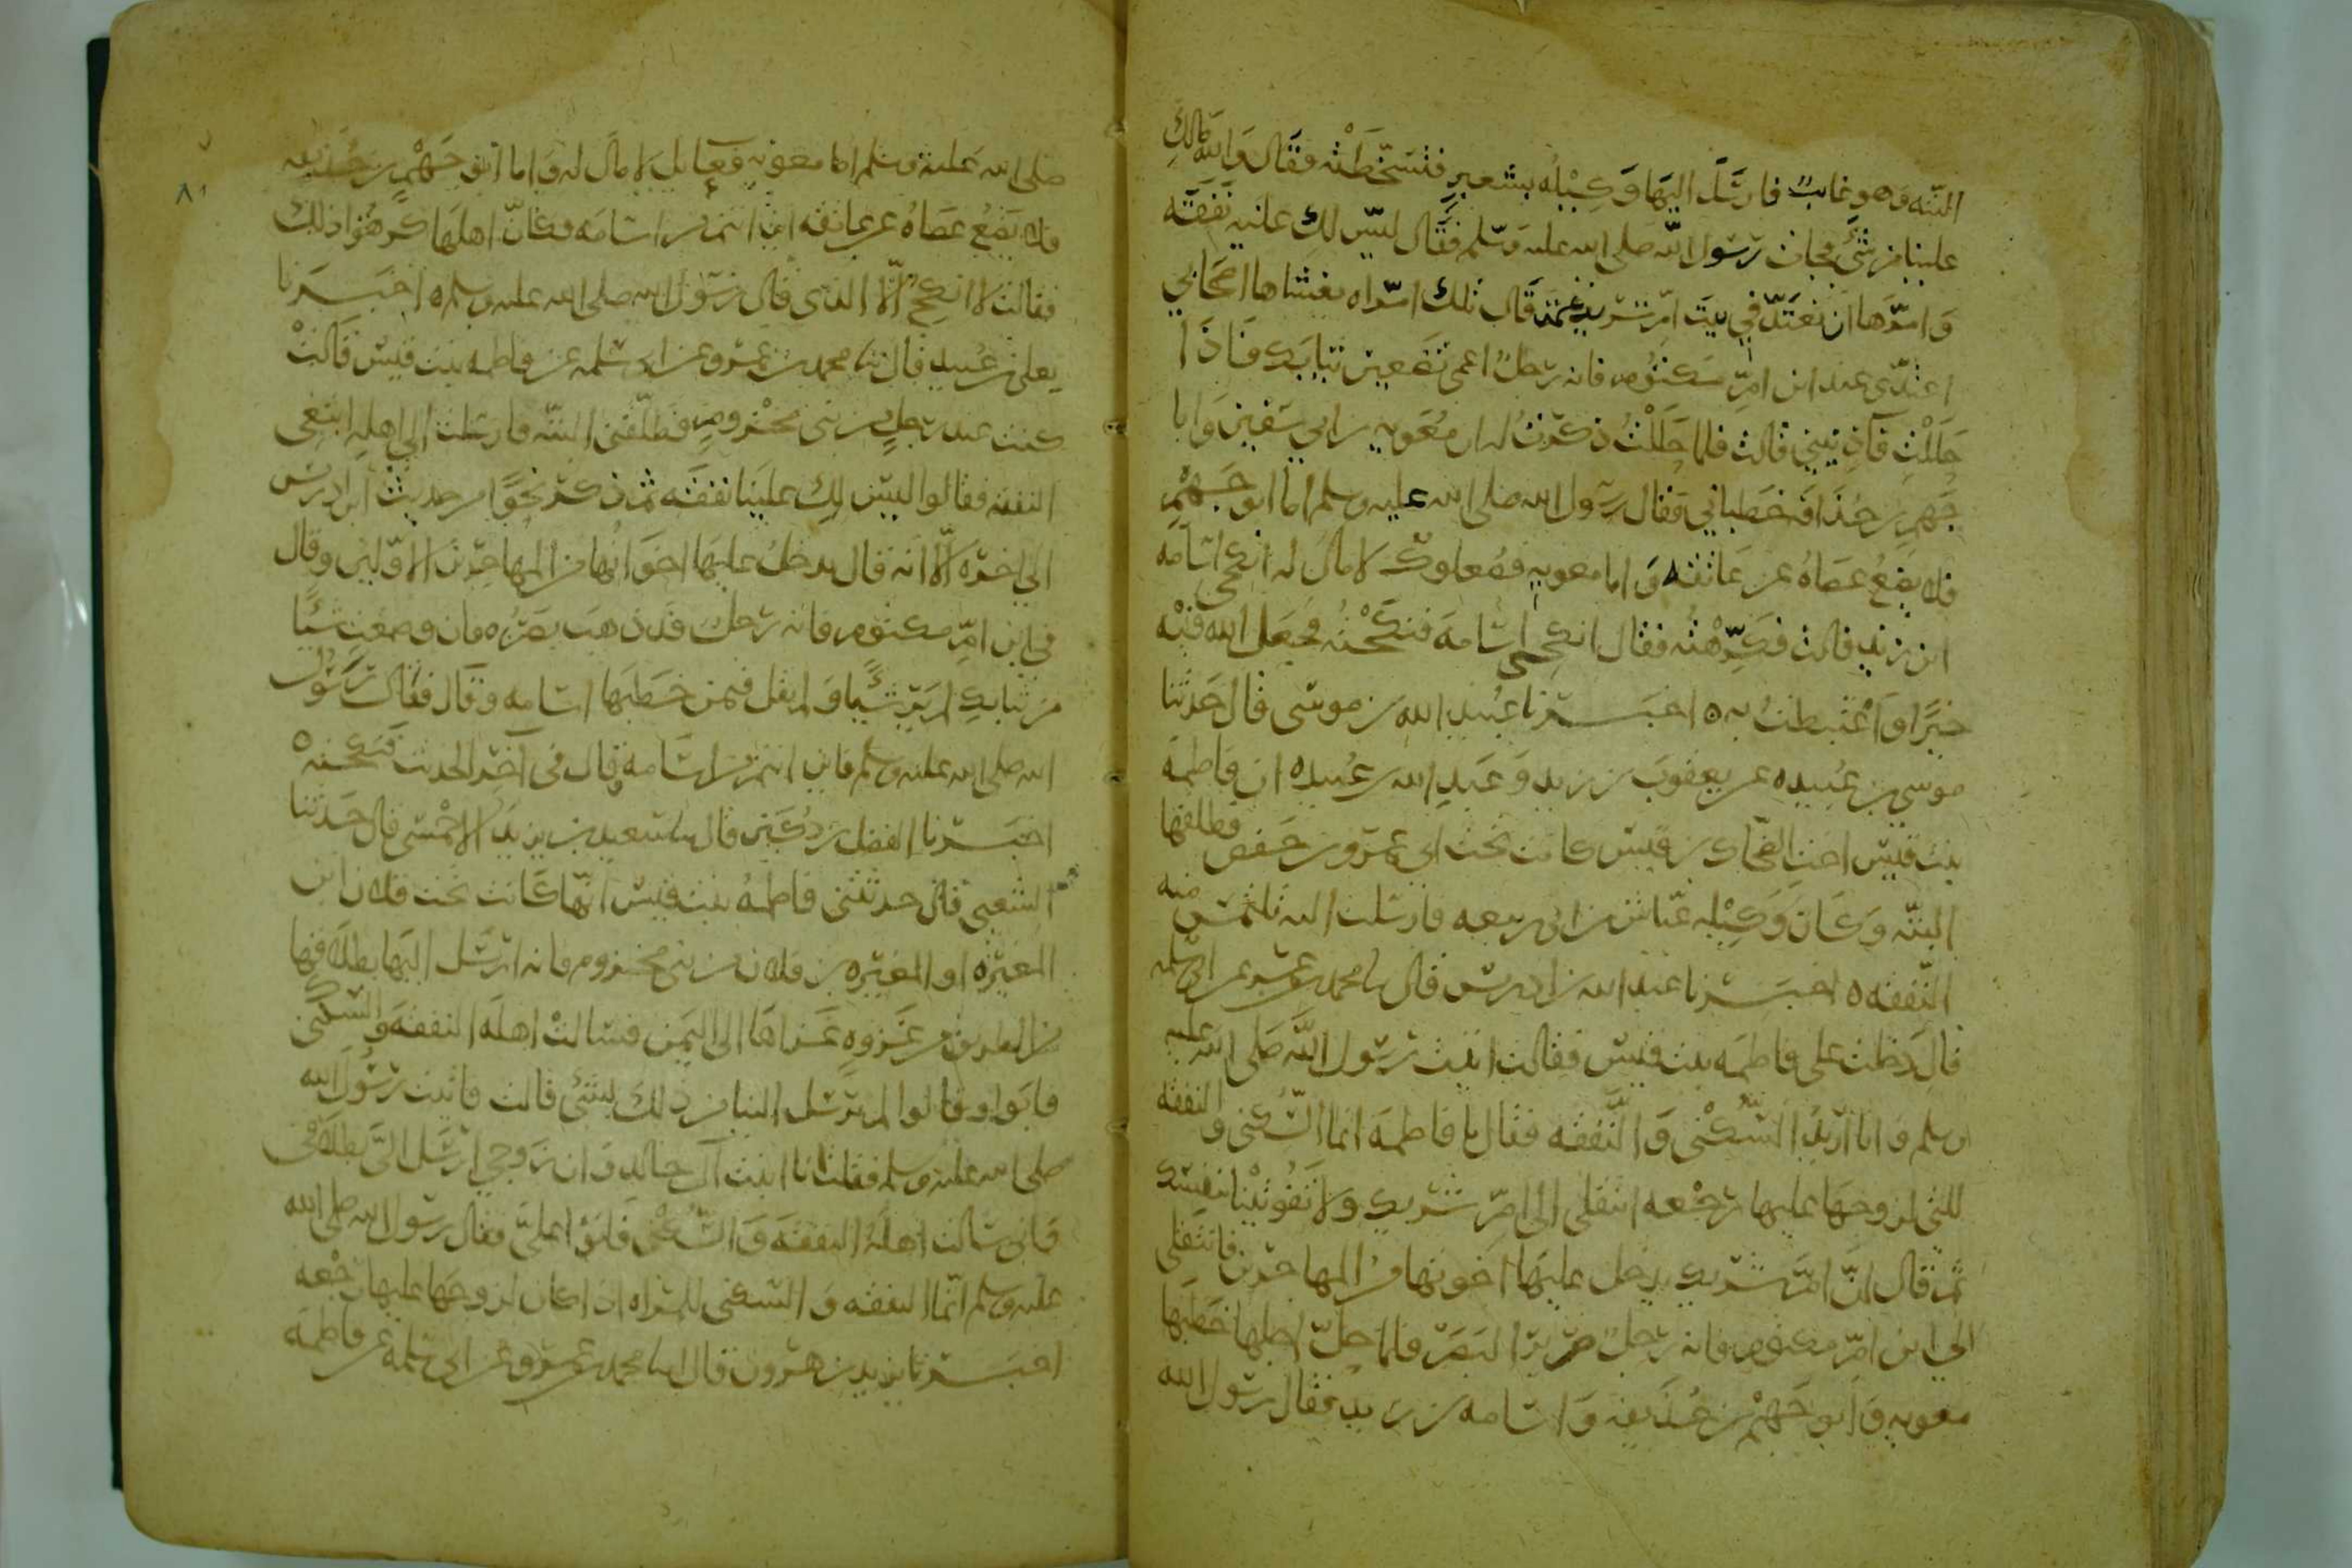 البتّه وهو غايب فارسَل اليهَا وَكِيْلُه بشعيرٍ فتسَخّطَتْه فقال وَالله مَالكِ
علينا من شئ فجات رسُول الله صلى الله عليه وسّلم فقال ليس لك عليه نَفَقَه
وَامرَها ان تعتَدّ في بيت امّ شريك ثم قَال تلك امرَاه يغشاها اصحَابي
اعتدّى عند ابن امّ مكتُوم فانه رجلٌ اعمى تضعين ثيابَك فاذَا
حَلَلْتِ فَآذِنيني قالت فلما حَلَلْتُ ذكرتُ له ان معَويه بن ابي سفين وَابا
جَهم بن حُذَافه خطباني فقال رسُول الله صلى الله عليه وسلم اما ابو جَهْمٍ
فلا يضَعُ عصَاهُ عن عَاتقه وَاما معويه فصُعلوك لا مال له انكحي اسَامه
ابن زيد قالت فكَرهْتُه فقال انكحِى اسَامه فنكَحْتُه فجعَل الله فيه
خيرًا وَاغتبطتُ به ه اخبَــرنا عُبيد الله بن موسَى قال حَدثنا
موسى بن عُبيده عن يعقوبَ بن زيد وَعَبدِ الله بن عُبيده ان فَاطمهَ
بنت قيسٍ اختِ الضّحاك بن قيس كانت تحت ابي عمرو بن حَفص فطلقها
البتّه وَكَانَ وَكِيْله عيّاش بن ابى ربيعه فارسَلت اليه تلتمس منه
النّفقه ه اخبَــرنا عبد الله بن ادريس قال نا محمد بن عمرو عن ابى سلمه
قال دَخلت على فاطمَه بنت قيس فقالت اتيت رسُول الله صَلى الله عليه
وسلم وانا اريدُ السّكْنى وَالنَّفقه فقال يا فاطمهَ انما السّكنى والنفقه
للتى لزوجهَا عليها رجْعه انتقلى الى امّ شريك وَلا تفُوتيْنا بنفسك
ثم قال انّ امّ شريك يدخل عليهَا اخوتها من المهاجرين فانتقلى
الى ابن امّ مكتوم فانه رجلٌ ضرير البَصَر فلما حلّ اجلها خَطَبها
معويه وَابو جَهْم بن حُذيفه وَاسَامه بن زيد فقال رسُول الله
صلى الله عليه وسلم اما معويه فعايل لا مال له وَاما ابو جَهْم بن حُذيفه
فلا يضعُ عصَاهُ عن عاتقه اين انتم من اسَامه فكانّ اهلهَا كرهُوا ذلك
فقالت لا انكح الّا الذى قال رسُول الله صلى الله عليه وسلم ه اخبَــرنا
يعلى بن عُبيد قال نا محمد بن عمرو عن ابى سَلمه عن فاطمه بنت قيس قالت
كنت عند رجلٍ من بنى مخزومٍ فطلّقنى البتّه فارسَلت الى اهله ابتغى
النفقه فقالوا ليس لك علينَا نفقَه ثم ذكر نحوًا من حديث ابن ادريس
الى اخره الّا انه قال يدخلُ عليهَا اخوَانُها من المهاجرين الاوّلين وقال
فى ابن امّ مكتوم فانه رجل قد ذهب بصَرُه فان وضعتِ شيئًا
من ثيابك لم يَر شيئًا وَلم يقل فيمن خطَبهَا اسَامه وقال فقال رسُول
الله صلى الله عليه وسلم فاين انتم من اسَامه وقال فى آخر الحديث فنكحته ه
اخبَــرنا الفضل بن دُكين قال نا سعيد بن يزيد الاحْمسى قال حَدثنا
الشعبى قال حدثتنى فاطمهُ بنت قيس انّها كَانت تحت فلان ابن
المغيره او المغيره بن فلان من بنى مخزوم وانه ارسَل اليهَا بطلاقها
من الطريق من غزوهٍ غزاها الى اليمن فسَالتْ اهلَه النفقه والسكنى
فابَوا وقالوا لم يُرسل الينا من ذلك بشئ قالت فاتيت رسُول الله
صلى الله عليه وسلم فقلت انا ابنت آل خالد وَان زوجي ارسَل الىّ بطلاقى
وَانى سَالت اهلَه النفقه وَالسّكْنى فابَوا علىّ فقال رسُول الله صلى الله
عليه وسلم انّما النفقه وَالسّكنى للمراه اذا كان لزوجهَا عليهَا رجْعه
اخبَــرنا يزيد بن هرون قال انا محمد بن عمرو عن ابى سَلمه عن فاطمه